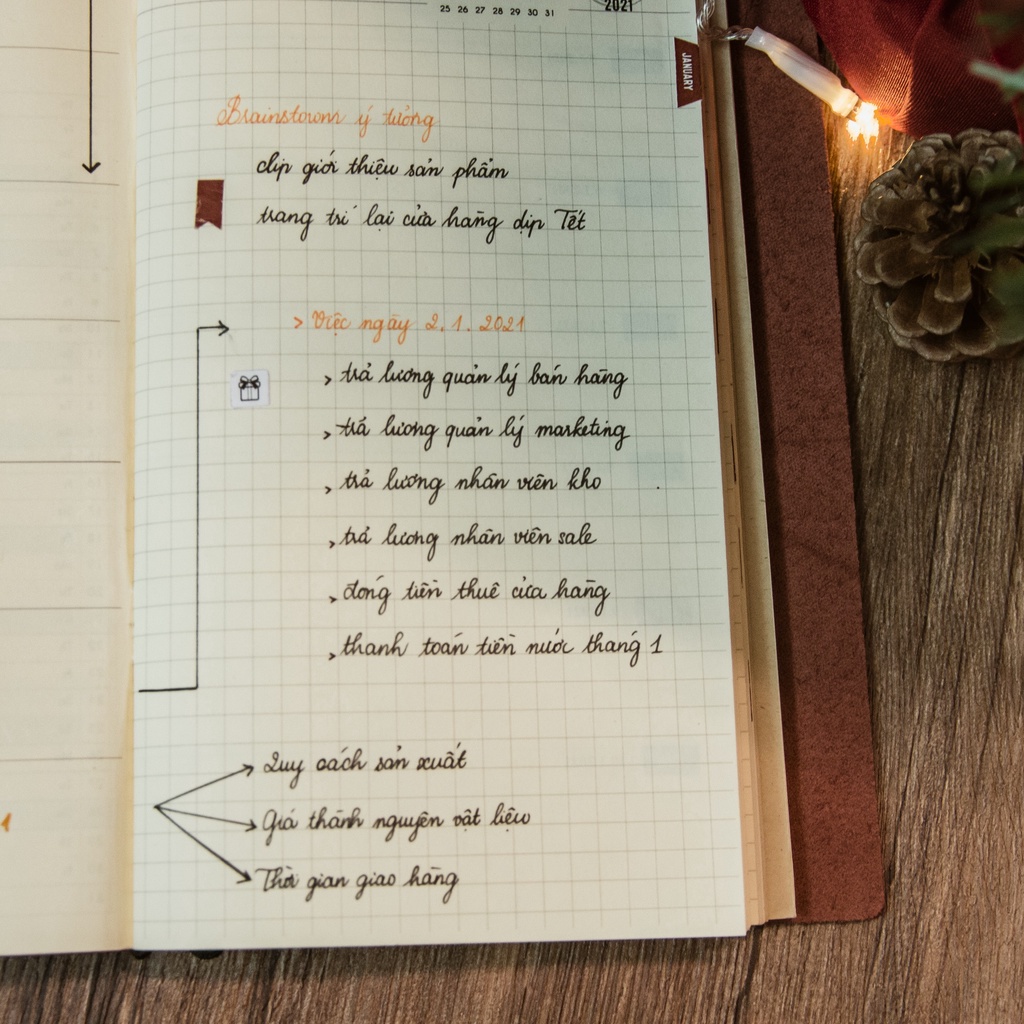 25 26 27 28 29 30 31
2021
JANUARY
Brainstorm ý tưởng
clip giới thiệu sản phẩm
trang trí lại cửa hàng dịp Tết
> Việc ngày 2.1.2021
> trả lương quản lý bán hàng
> trả lương quản lý marketing
> trả lương nhân viên kho
> trả lương nhân viên sale
> đóng tiền thuê cửa hàng
> thanh toán tiền nước tháng 1
Quy cách sản xuất
Giá thành nguyên vật liệu
Thời gian giao hàng
1